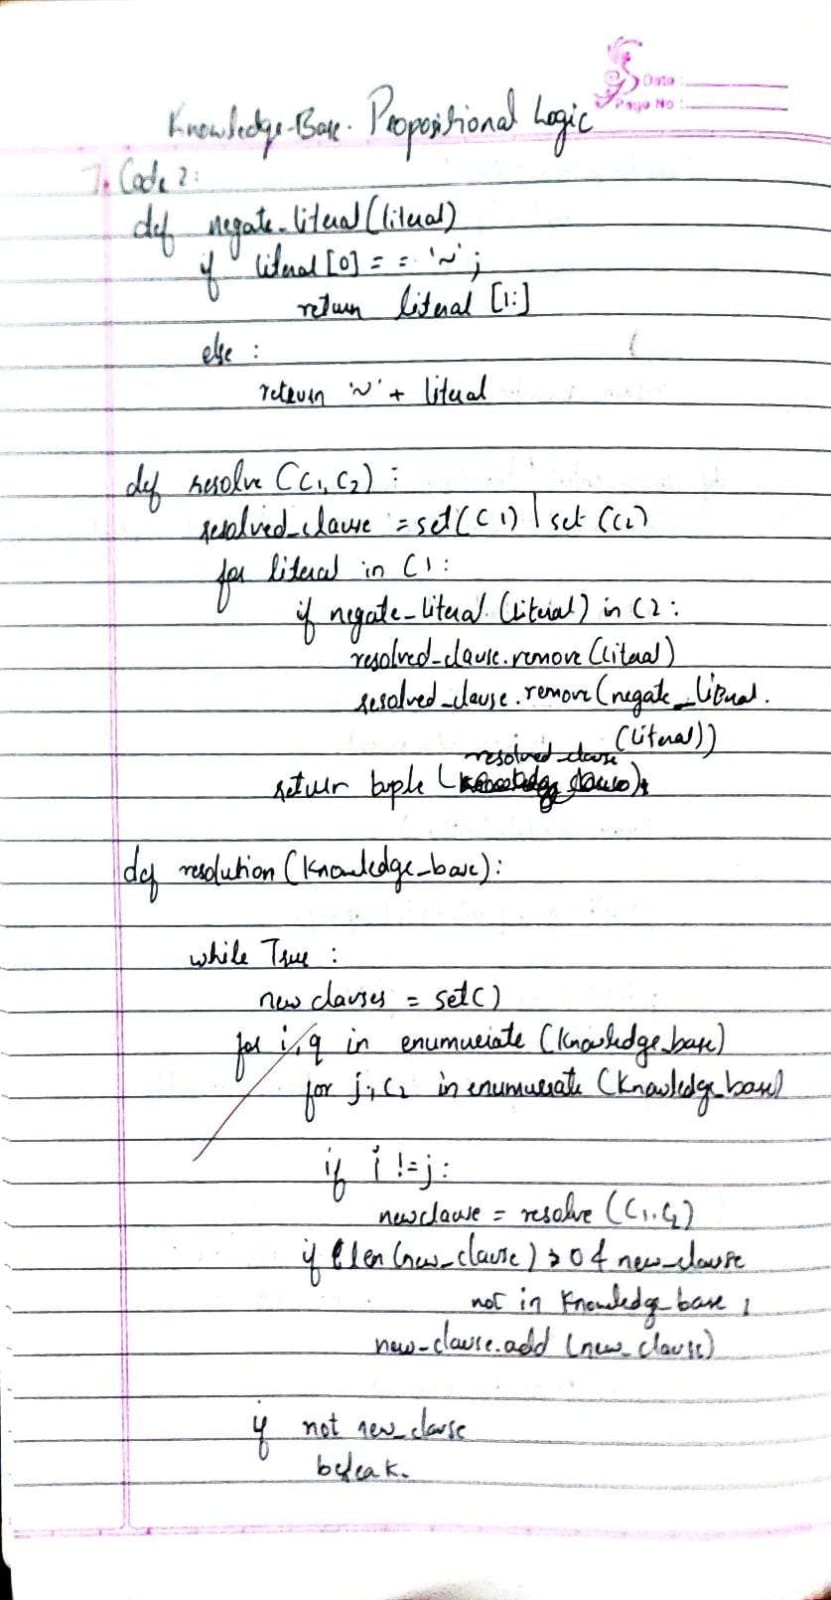 Date :
Page No :
Knowledge-Base. Propositional Logic
7. Code 2:
def negate-literal(literal)
if literal[0] = = '~' ;
return literal [1:]
else :
return '~' + literal
def resolve (C1, C2) :
resolved_clause = set(C1) | set (C2)
for literal in C1:
if negate-literal (literal) in C2:
resolved-clause.remove(literal)
resolved_clause.remove(negate_literal.
(literal))
resolved_clause
return tuple ( );
def resolution (knowledge_base):
while True :
new clauses = set()
for i, q in enumuciate (knowledge_base)
for j, C2 in enumuerate (knowledge_base)
if i != j:
newclause = resolve (C1, C2)
if len(new_clause) > 0 & new_clause
not in knowledge_base ;
new-clause.add (new_clause)
if not new_clause
break.